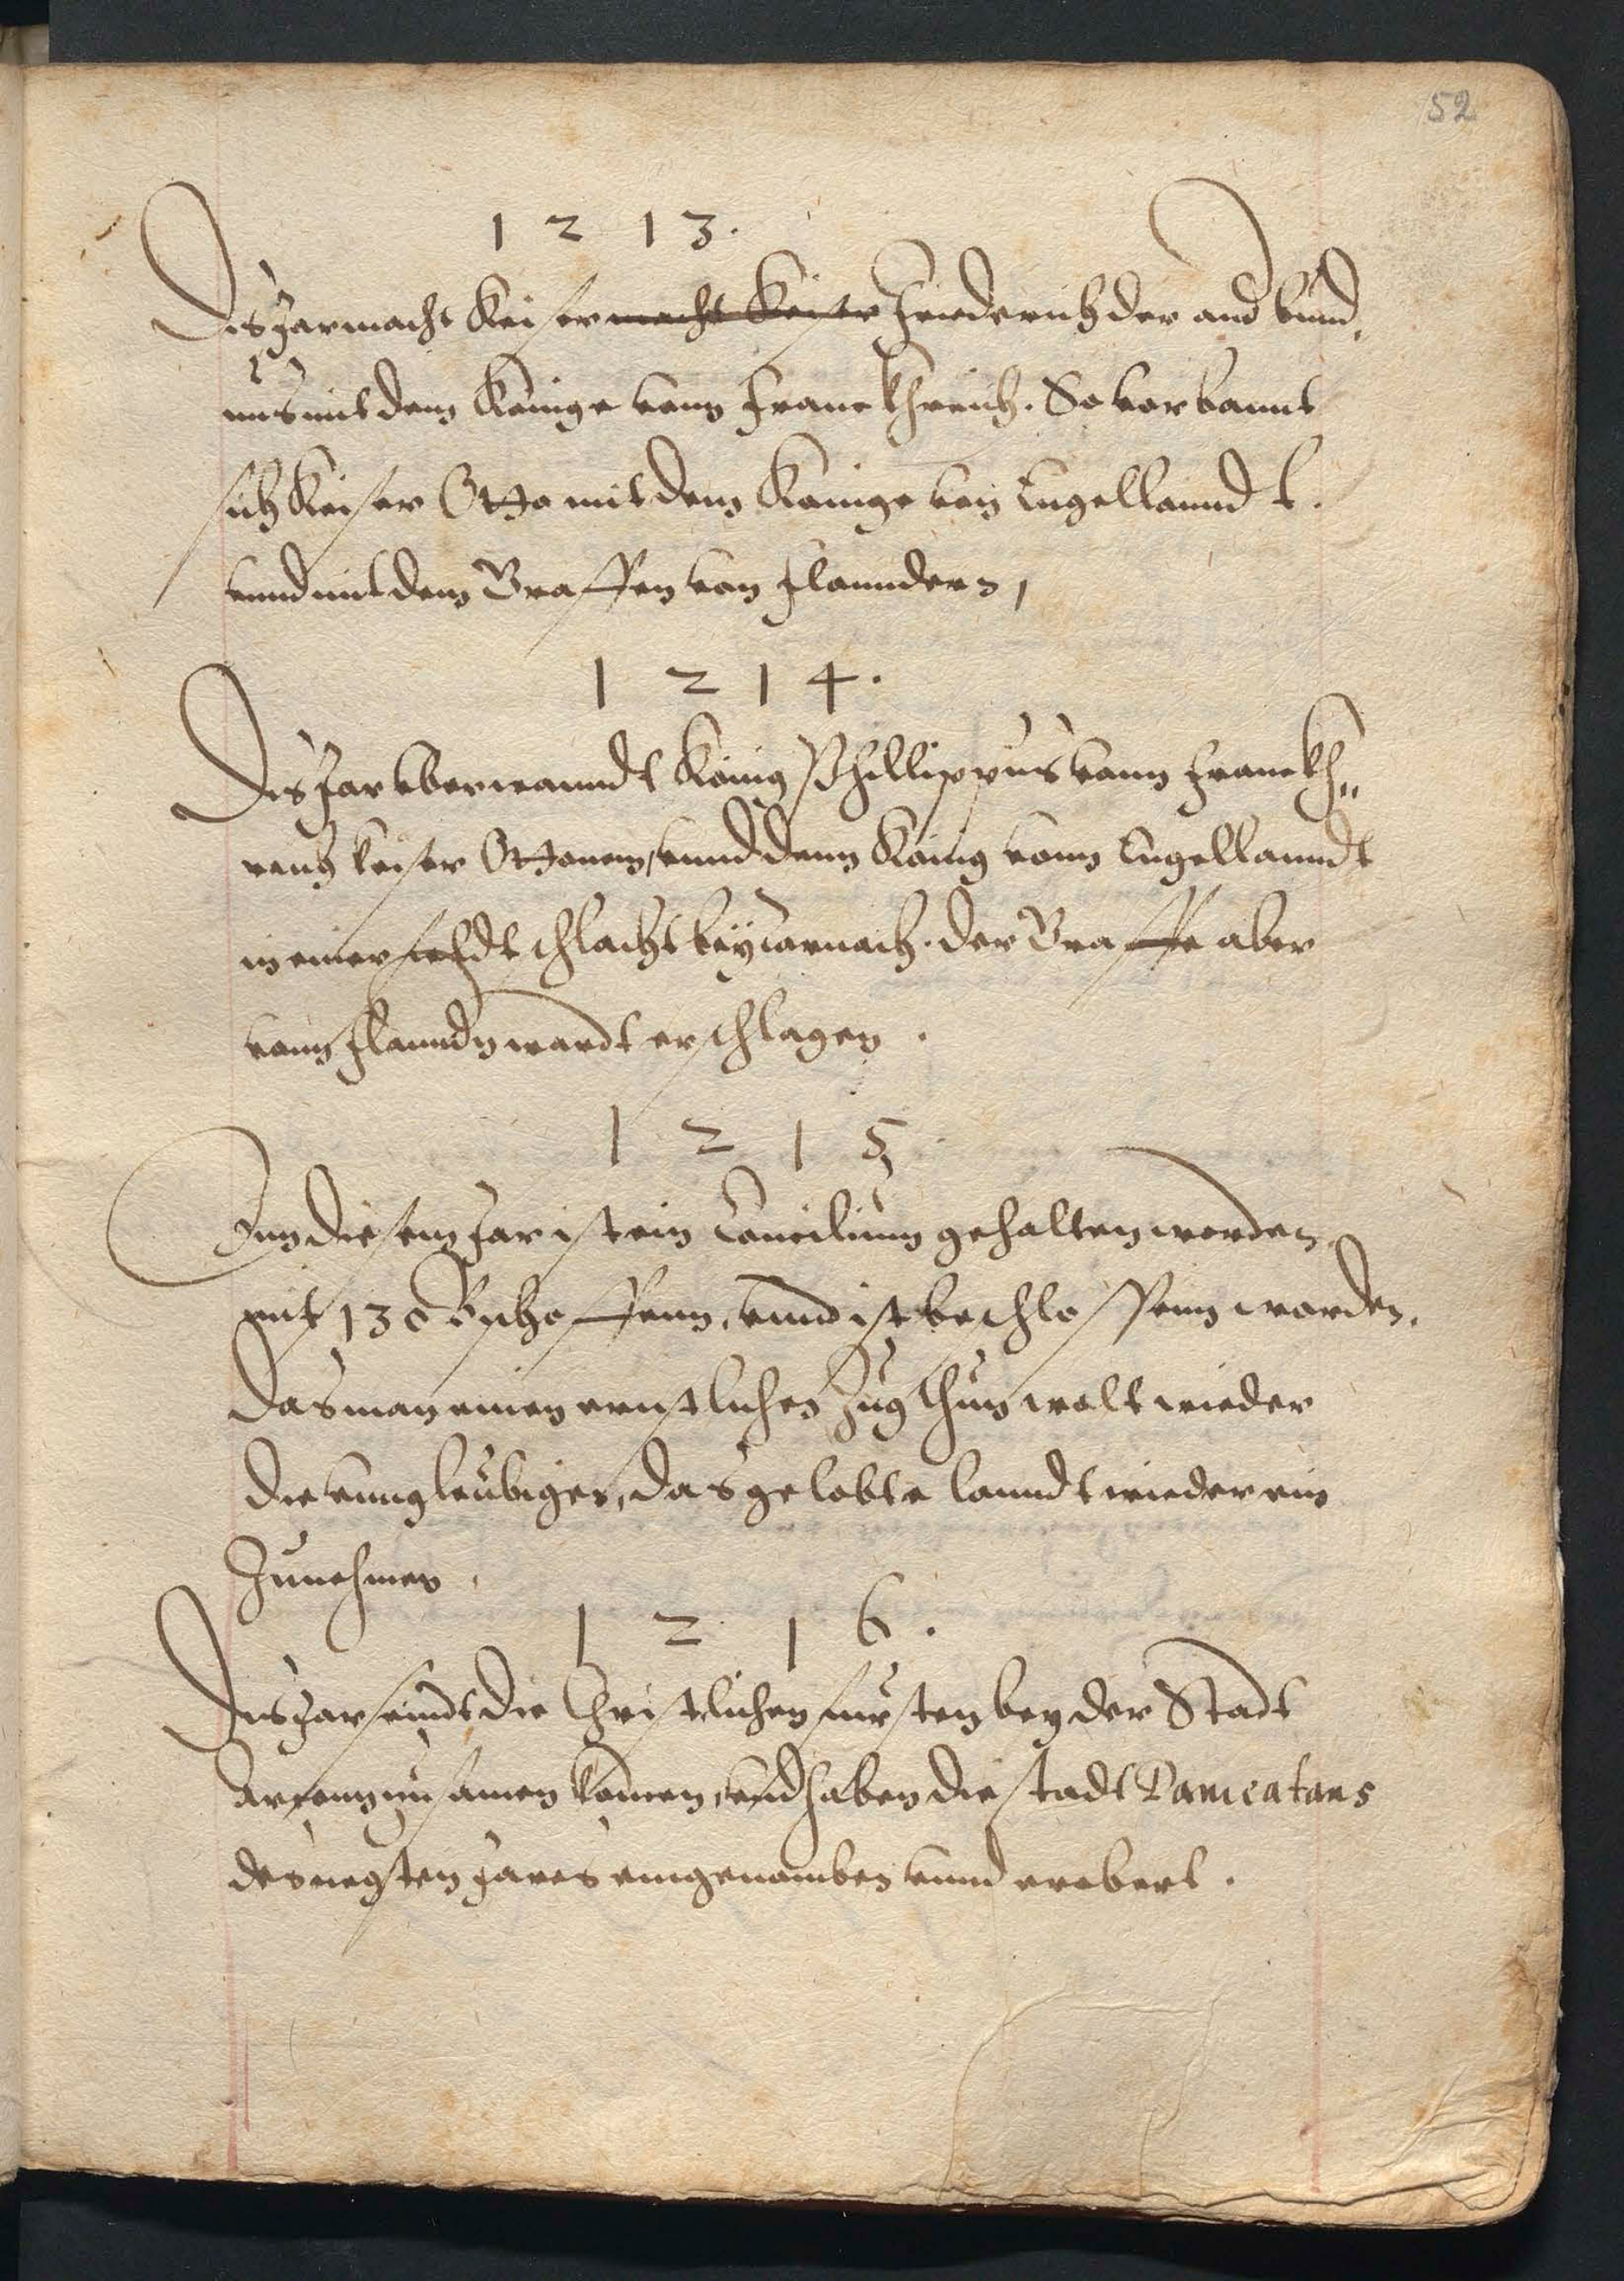 52
1 2 1 3.
Dis Jar macht Keiser macht Keiser Friederich der and bund,
nus mit dem Könige vonn Franckhreich. So verbannt
sich Keiser Otto mit dem Könige von Engellanndt.
vnnd mit dem Graffen von Flanndern,
1 2 1 4.
Dis Jar vberwanndt König Phillippus vonn Franckh„
reich keiser Ottonem, vnnd denn König vonn Engellanndt
in einer feldt schlacht bey Dornach. der Graffe aber
vonn Flandern wardt erschlagen.
1 2 1 5
Inn diesem Jar ist ein Concilium gehalten worden
mit 130 Bischoffenn, vnnd ist beschlossenn worden.
Das man einen ernstlichen Zug thun wolt wieder
die vnngleubigen, das gelobte lanndt wieder ein
Zunehmen.
1 2 1 6.
Dis Jar seindt die Christlichen fursten bey der Stadt
zusamen komen, vnd haben die stadt Damiatans
des negsten Jares eingenomben vnnd erobert.